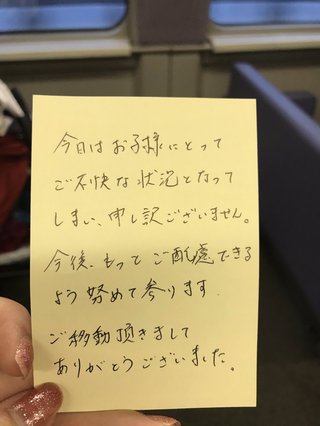 今日はお子様にとって
ご不快な状況となって
しまい、申し訳ございません。
今後、もっとご配慮できる
よう努めて参ります
ご移動頂きまして
ありがとうございました。